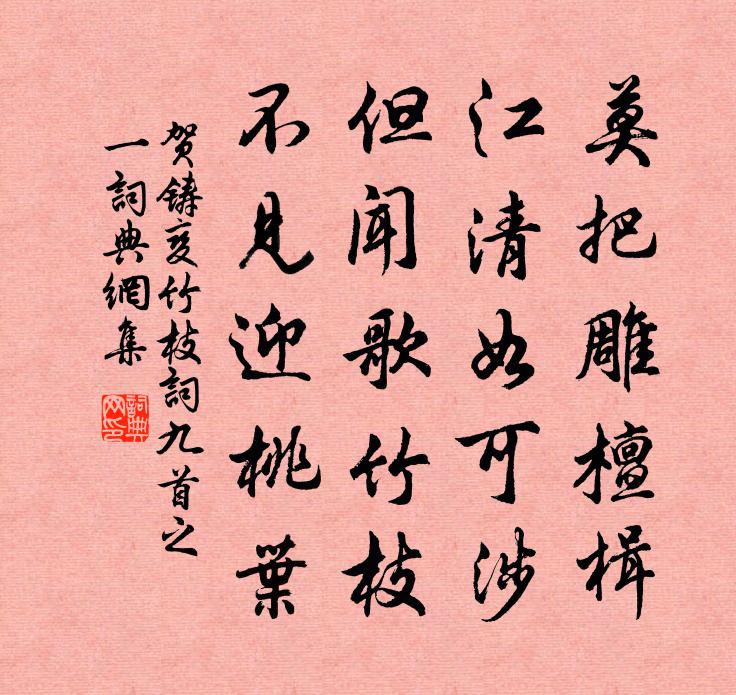 莫把雕檀楫
江清如可涉
但聞歌竹枝
不見迎桃葉
贺鑄變竹枝詞九首之
一詞典網集
詞典网印